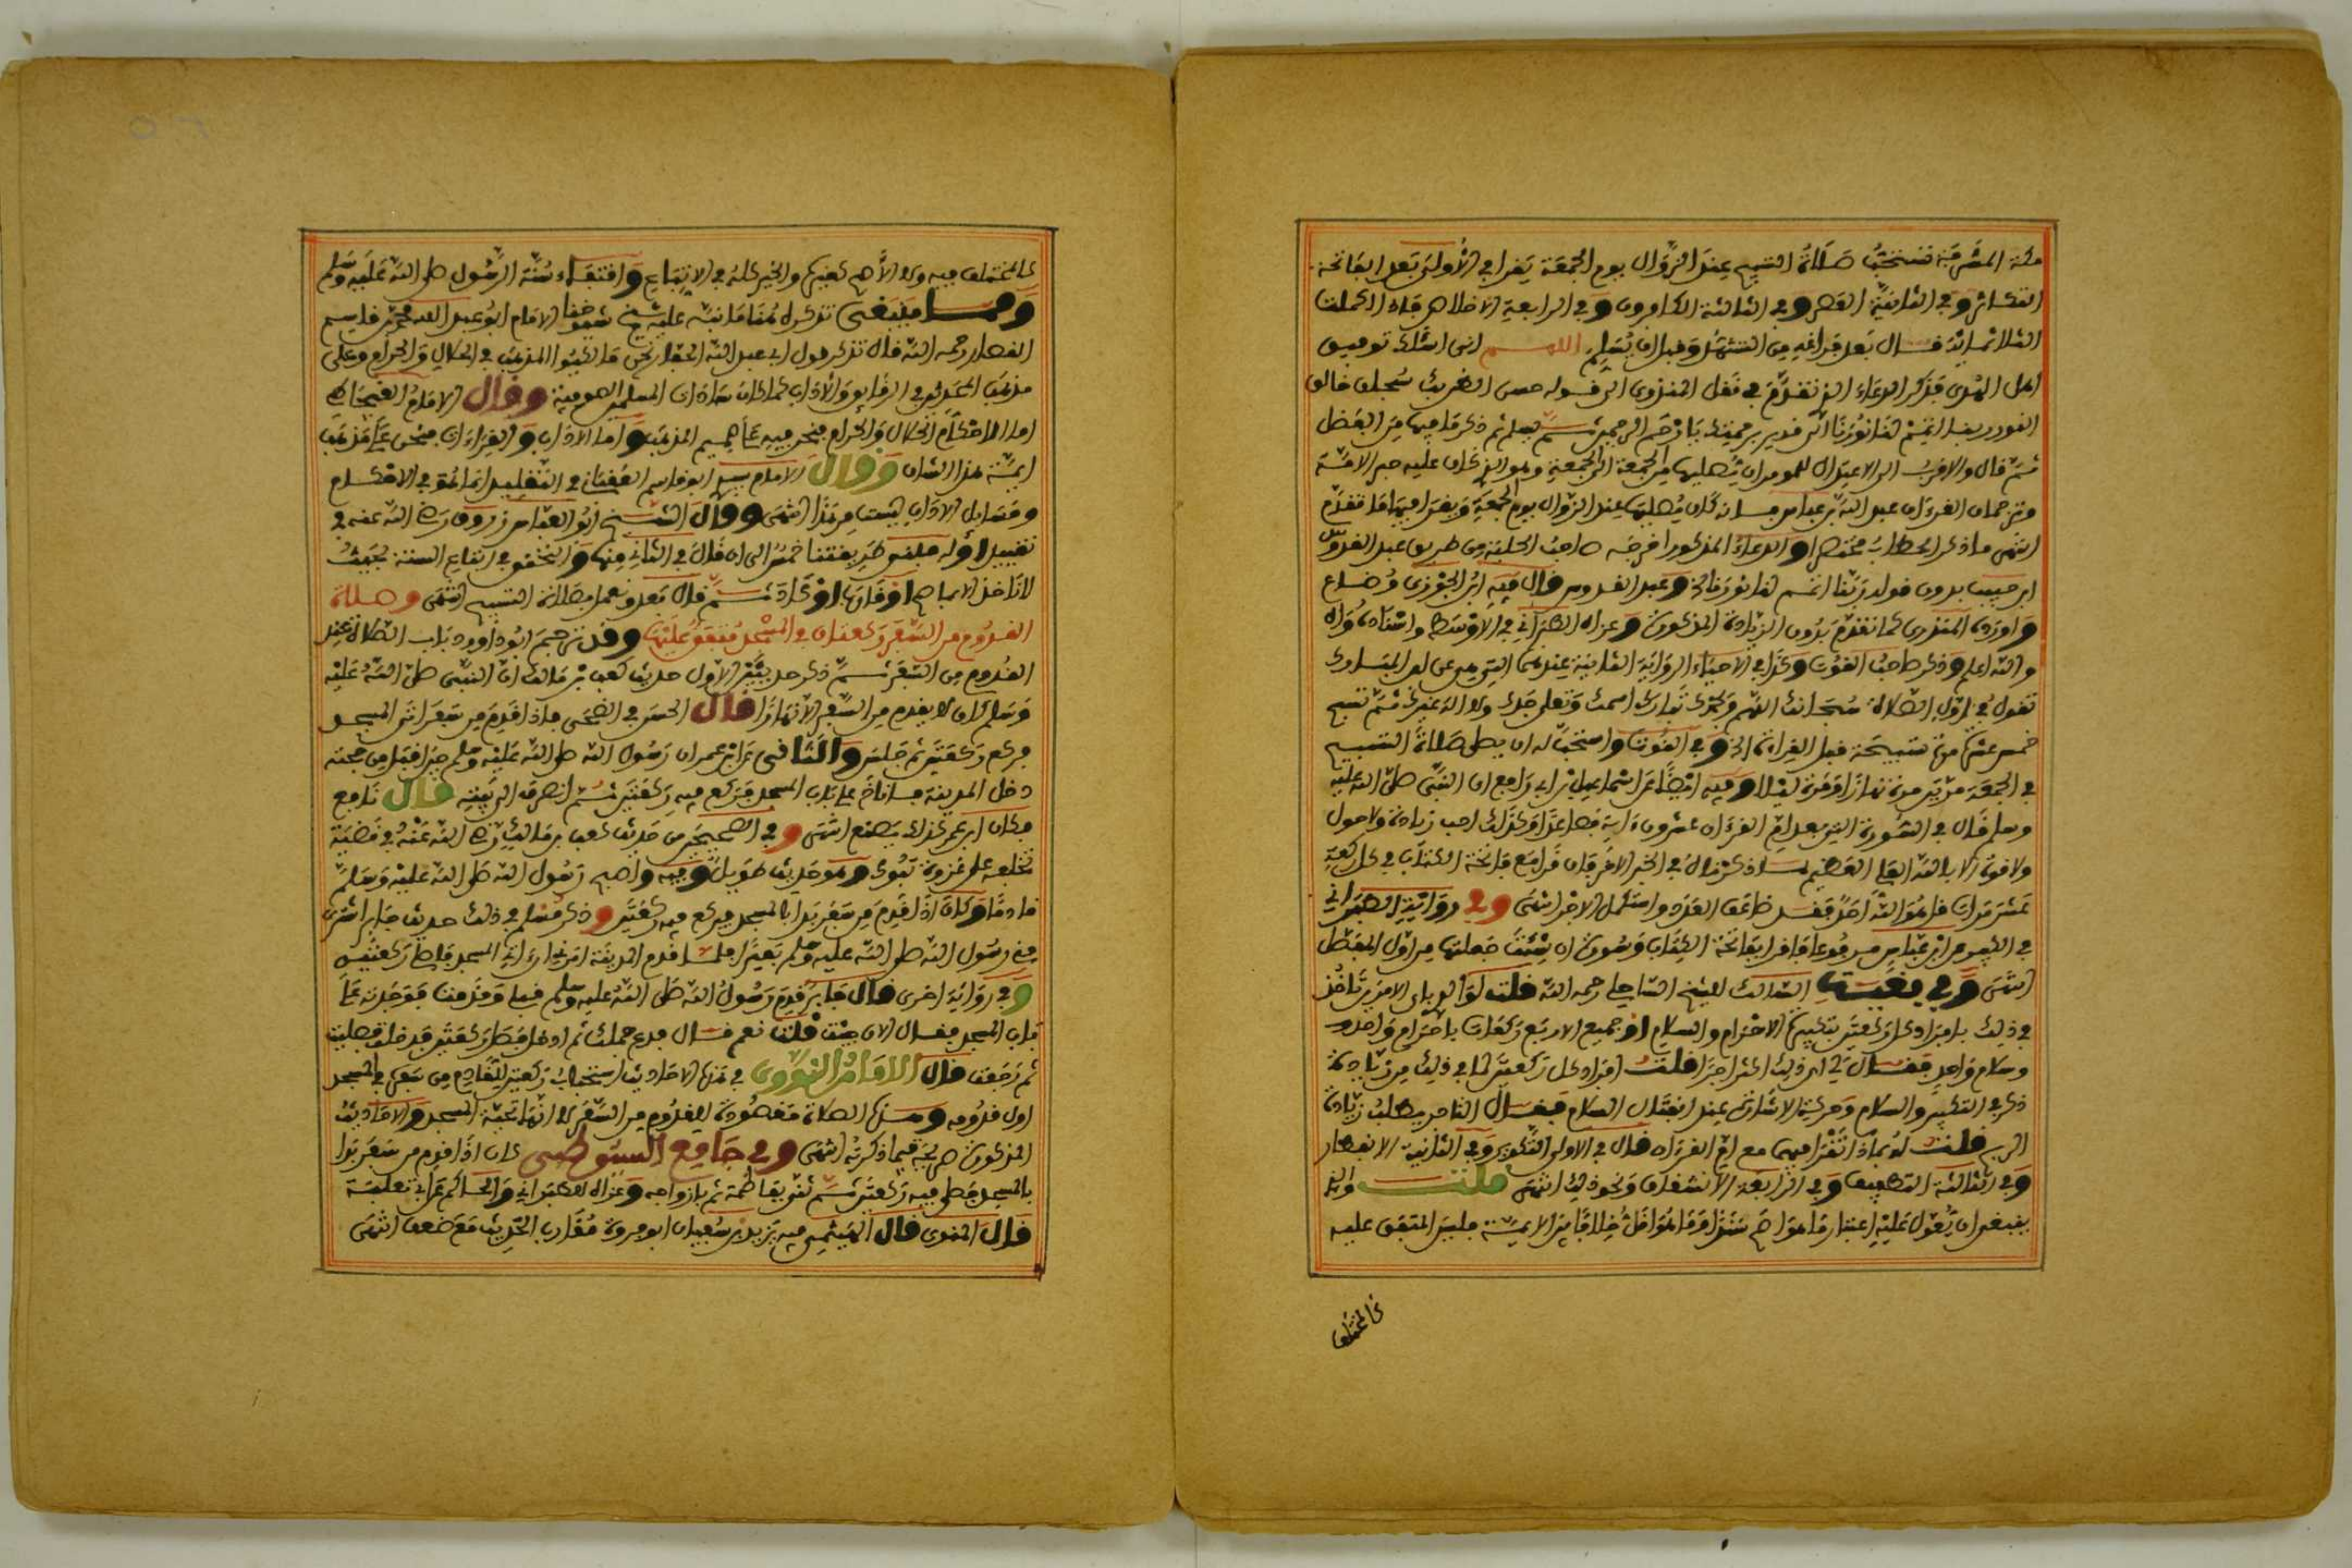 مكة المشرفة تستحب صلاة التسبيح عند الزوال يوم الجمعة يقرا في الأولى بعد الفاتحة
التكاثر وفي الثانية العصر وفي الثالثة الكافرون وفي الرابعة الاخلاص فاذا اكملت
الثلاثمائة قال بعد فراغه من التشهد وقبل ان يسلم اللهم اني اسئلك توفيق
اهل الهدى فذكر الدعاء الذي تقدم في نقل المنذري الى قوله حسن الظن بك سبحان خالق
النور ربنا اتمم لنا نورنا انك قدير برحمتك يا ارحم الراحمين ثم يسلم ثم ذكر ما فيها من الفضل
ثم قال والاقرب الى الاعتدال للمومن ان يصليها من الجمعة الى الجمعة وهو الذي كان عليه حبر الامة
وترجمان القرءان عبد الله بن عباس فانه كان يصليها عند الزوال يوم الجمعة ويقرا فيها ما تقدم
انتهى ما ذكر الحطاب مختصرا والدعاء المذكور اخرجه صاحب الحلية من طريق عبد القدوس
ابن حبيب بدون قوله ربنا اتمم لنا نورنا الخ وعبد القدوس قال فيه ابن الجوزي وضاع
واورده المنذري كما تقدم بدون الزيادة المذكورة وعزاه الطبراني في الاوسط واسناده واه
والله اعلم وذكر صاحب القوت وكذا في الاحياء الرواية الثانية عندهما التي هي عن ابن المبارك
تقول في اول الصلاة سبحانك اللهم وبحمدك تبارك اسمك وتعلى جدك ولا اله غيرك ثم تسبح
خمس عشرة تسبيحة قبل القراءة الخ وفي القوت واستحب له ان يصلي صلاة التسبيح
في الجمعة مرتين مرة نهارا ومرة ليلا وفيه ايضا عن اسماعيل بن ابي رافع ان النبي صلى الله عليه
وسلم قال في السورة التي بعد ام القرءان عشرون ءاية فصاعدا وكذلك احب زيادة ولا حول
ولا قوة الا بالله العلي العظيم لما ذكرناه في الخبر الاخر فان قرا مع فاتحة الكتاب في كل ركعة
عشر مرات قل هو الله احد فقد ضاعف العدد واستكمل الاجر انتهى وفي رواية الطبراني
في الكبير عن ابن عباس مرفوعا فاقرا بفاتحة الكتاب وسورة ان شئت جعلتها من اول المفصل
انتهى وفي بغية السالك للشيخ الساحلي رحمه الله قلت لوالدي باي الامرين تاخذ
في ذلك بافراد كل ركعتين بتكبيرة الاحرام والسلام او جميع الاربع ركعات باحرام واحد
وسلام واحد فقال لي اي ذلك اكثر اجرا قلت افراد كل ركعتين لما في ذلك من زيادة
ذكر في التكبير والسلام وحركة الاشارة عند انفتال السلام فقال التاجر يطلب زيادة
الربح قلت له بماذا تقرا فيها مع ام القرءان قال في الاولى التكوير وفي الثانية الانفطار
وفي الثالثة التطفيف وفي الرابعة الانشقاق ونحو ذلك انتهى قلت والذي
ينبغي ان يعول عليه اعتبار ما هو اصح سندا وما هو اقل خلافا من الايمة فليس المتفق عليه
كالمختلف
كالمختلف فيه ولا الاهم كغيره والخير كله في الاتباع واقتفاء سنة الرسول صلى الله عليه وسلم
ومما ينبغي تذكره هنا ما نبه عليه شيخ شيوخنا الامام ابو عبد الله محمد بن قاسم
القصار رحمه الله قال تذكر قول ابي عبد الله الحفار نحن مالكيوا المذهب في الحلال والحرام وعلى
مذهب المحدثين في الرقايق والاداب كما كان سادات المسلمين الصوفية وقال الامام القيجاطي
اما الاحكام الحلال والحرام فنحن فيه على صميم المذهب واما الاداب والقراءات فنحن على مذهب
ايمة هذا الشان وقال الامام سيدي ابو قاسم العقباني التقليد انما هو في الاحكام
وفضايل الاداب ليست من هذا انتهى وقال الشيخ ابو العباس زروق رضي الله عنه في
تقييد اوله مبنى طريقتنا خمس الى ان قال في الثاني منها والتحقق في اتباع السنة بحيث
لا ناخذ الا بما صح او قارب او كاد ثم قال بعد ونعمل بصلاة التسبيح انتهى وصلاة
القدوم من السفر ركعتان في المسجد متفق عليها وقد ترجم ابو داوود باب الصلاة عند
القدوم من السفر ثم ذكر حديثين الاول حديث كعب بن مالك ان النبي صلى الله عليه
وسلم كان لا يقدم من السفر الا نهارا قال الحسن في الضحى فاذا قدم من سفر اتى المسجد
فركع ركعتين ثم جلس والثاني عن ابن عمر ان رسول الله صلى الله عليه وسلم حين اقبل من حجته
دخل المدينة فاناخ على باب المسجد فركع فيه ركعتين ثم انصرف الى بيته قال نافع
فكان ابن عمر كذلك يصنع انتهى وفي الصحيحين من حديث كعب بن مالك رضي الله عنه في قضية
تخلفه على غزوة تبوك وهو حديث طويل وفيه واصبح رسول الله صلى الله عليه وسلم
قادما وكان اذا قدم من سفر بدا بالمسجد فيركع فيه ركعتين وذكر مسلم في ذلك حديث جابر اشترى
مني رسول الله صلى الله عليه وسلم بعيرا فلما قدم المدينة امرني ان اتي المسجد فاصلي ركعتين
وفي رواية اخرى قال جابر قدم رسول الله صلى الله عليه وسلم قبلي وقدمت فوجدته على
باب المسجد فقال الان جئت قلت نعم قال فدع جملك ثم ادخل فصل ركعتين فدخلت فصليت
ثم رجعت قال الامام النووي في هذه الاحاديث استحباب ركعتين للقادم من سفره في المسجد
اول قدومه وهذه الصلاة مقصودة للقدوم من السفر لا انها تحية المسجد والاحاديث
المذكورة صريحة فيما ذكرته انتهى وفي جامع السيوطي كان اذا قدم من سفر بدا
بالمسجد فصلى فيه ركعتين ثم يثني بفاطمة ثم بازواجه وعزاه للطبراني والحاكم عن ابي ثعلبة
قال المنوي قال الهيثمي فيه يزيد بن سفيان ابو فروة مقارب الحديث مع ضعف انتهى